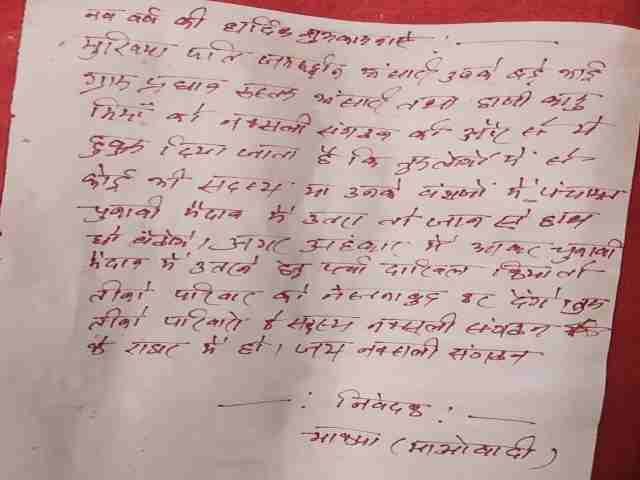 नव वर्ष की हार्दिक शुभकामनाएं :
मुखिया पति जनार्दन अंसारी उनके बड़े भाई
ग्राम प्रधान रुस्तम अंसारी तथा हाजी कादु
मियाँ को नक्सली संगठन की ओर से ये
हुक्म दिया जाता है कि तुमलोगों में से
कोई भी सदस्य या उनके वंशजों में पंचायत
चुनावी मैदान में उतरा तो जान से हाथ
धो बैठोगे। अगर अहंकार में आकर चुनावी
मैदान में उतरने हेतु पर्चा दाखिल किया तो
तीनों परिवार को नेस्तनाबुद कर देंगे। तुम
तीनों परिवारो के सदस्य नक्सली संगठन
के राडार में हो। जय नक्सली संगठन
—: निवेदक :—
(माओवादी)